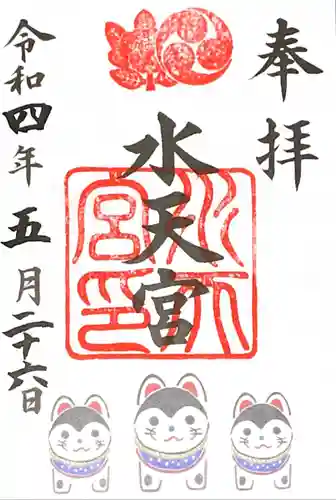 奉拝
水天宮
令和四年五月二十六日
水天宮印